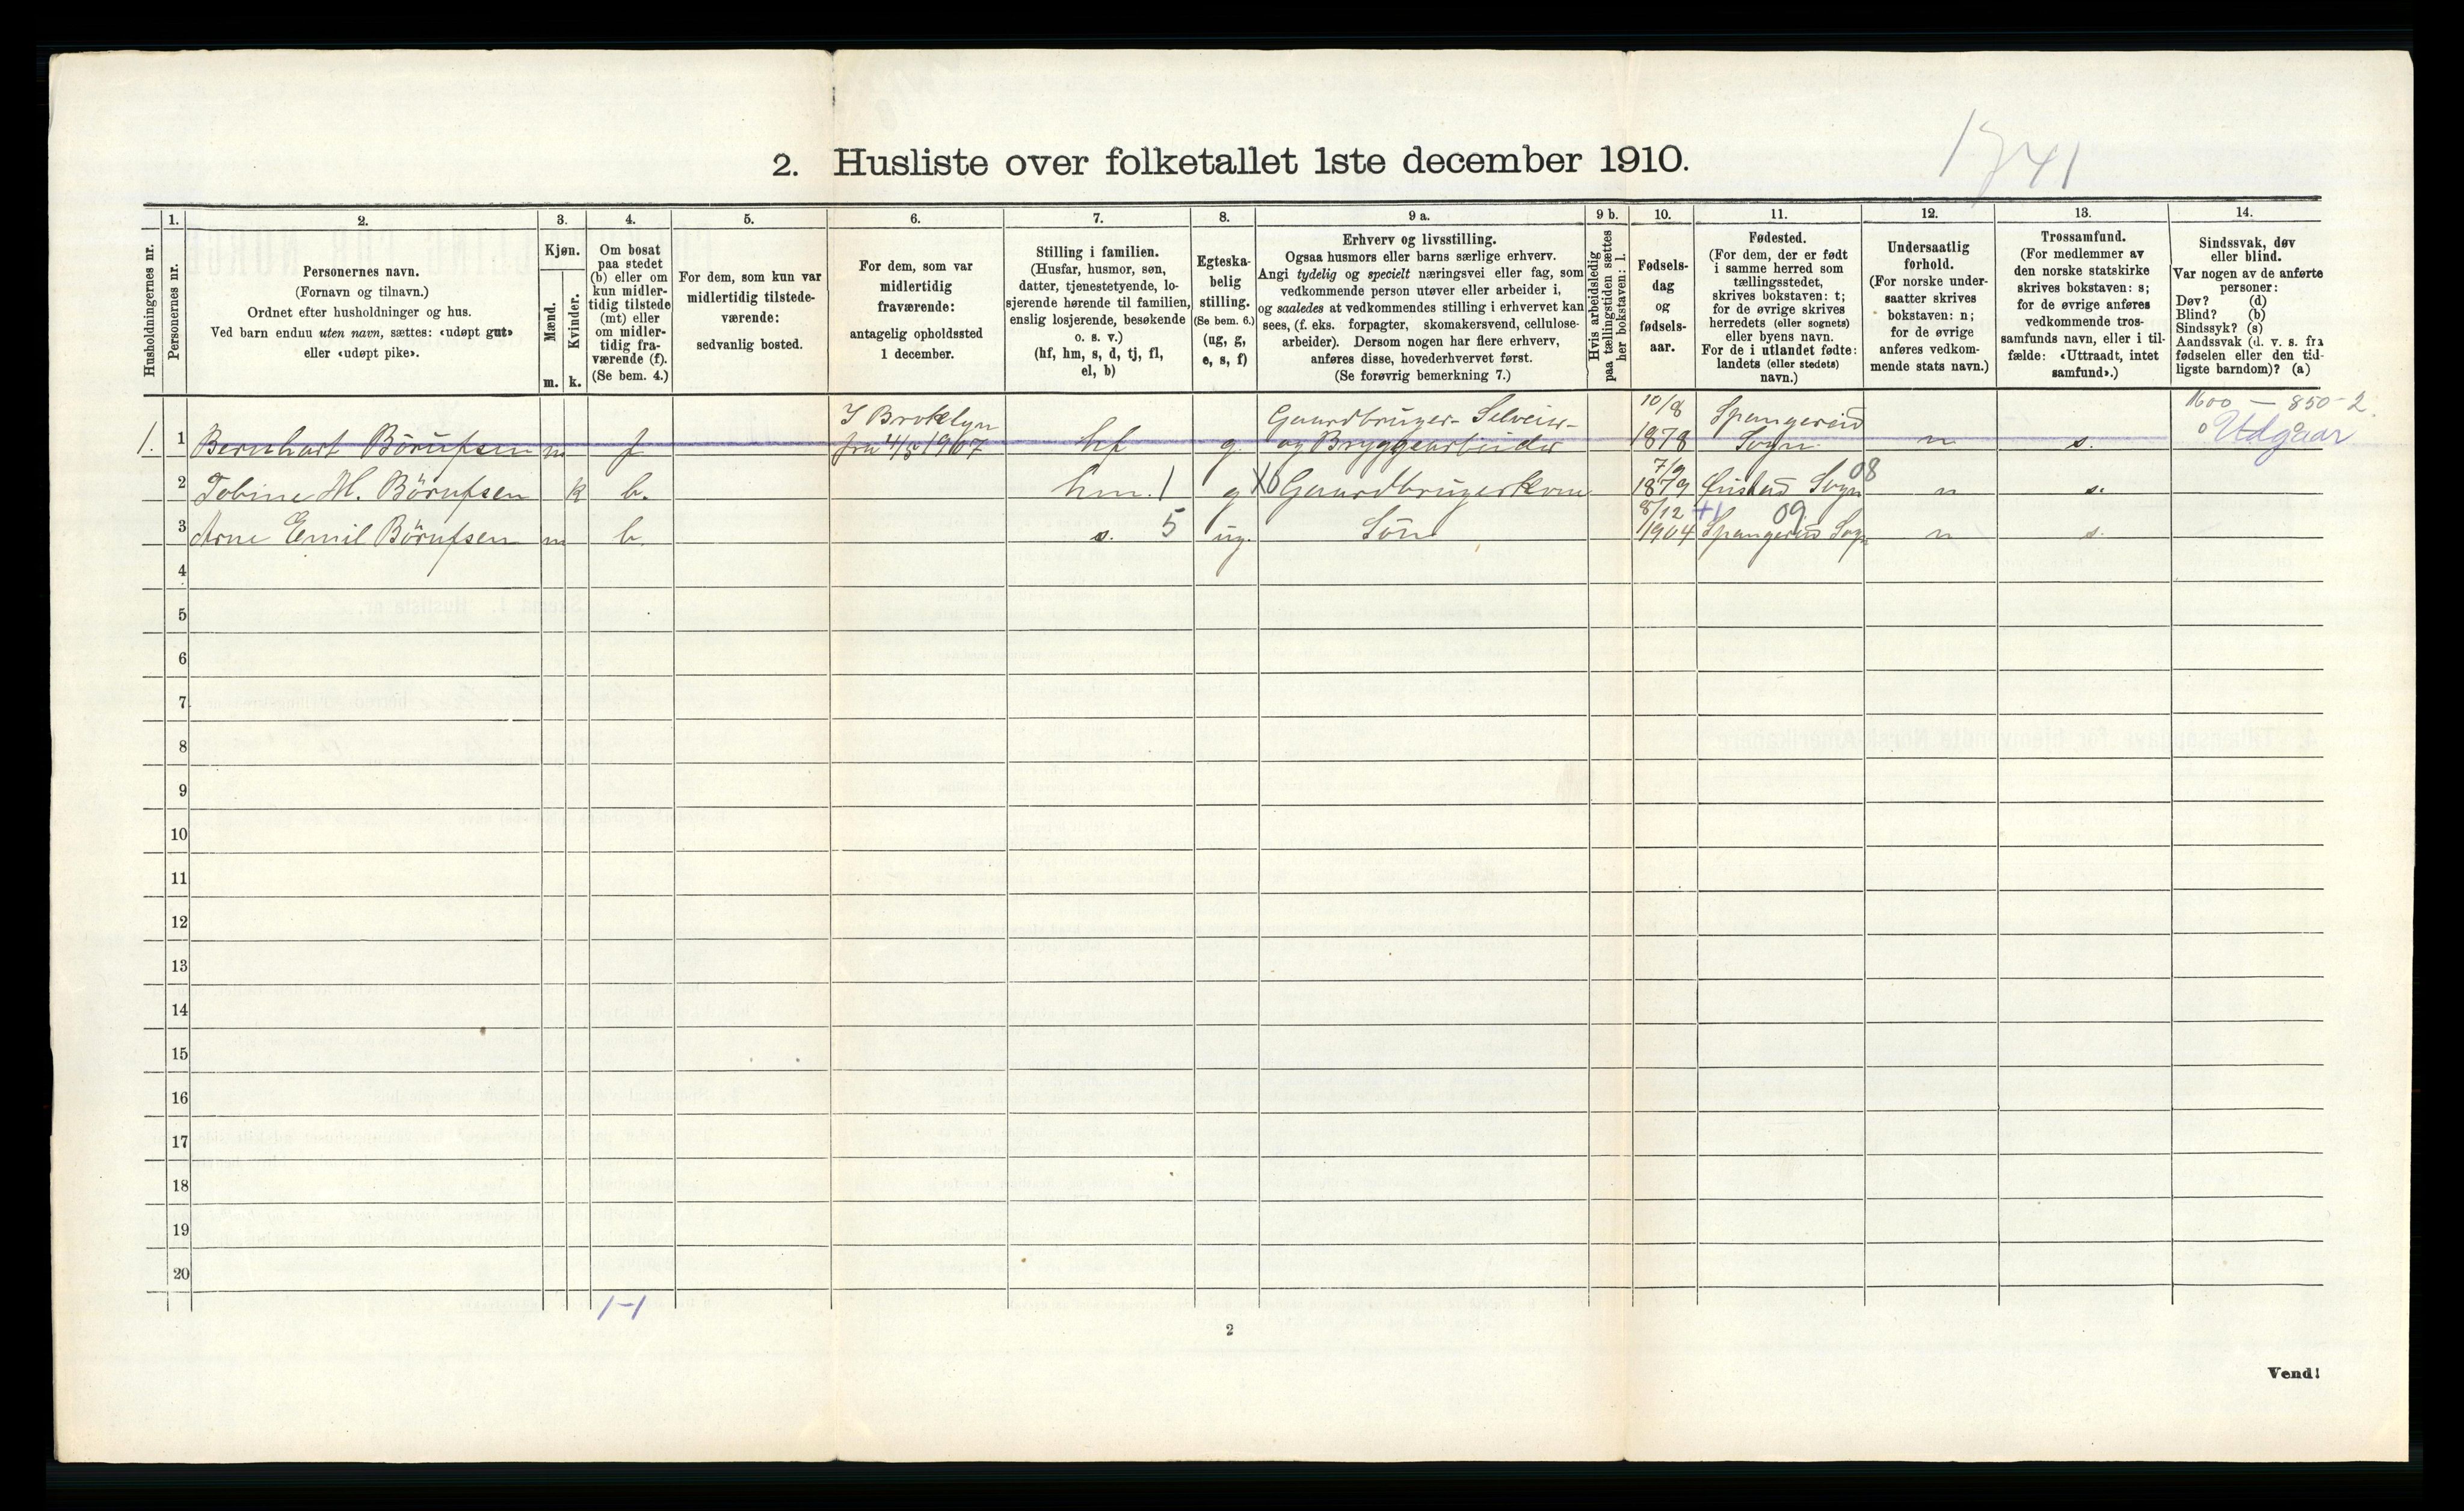 1741
2. Husliste over folketallet 1ste december 1910.
Husholdningernes nr.
1.
Personernes nr.
2.
Personernes navn.
(Fornavn og tilnavn.)
Ordnet efter husholdninger og hus.
Ved barn endnu uten navn, sættes: «udøpt gut»
eller «udøpt pike».
3.
Kjøn.
Mænd.
Kvinder.
m. k.
4.
Om bosat
paa stedet
(b) eller om
kun midler-
tidig tilstede
(mt) eller
om midler-
tidig fra-
værende (f).
(Se bem. 4.)
5.
For dem, som kun var
midlertidig tilstede-
værende:
sedvanlig bosted.
6.
For dem, som var
midlertidig
fraværende:
antagelig opholdssted
1 december.
7.
Stilling i familien.
(Husfar, husmor, søn,
datter, tjenestetyende, lo-
sjerende hørende til familien,
enslig losjerende, besøkende
o. s. v.)
(hf, hm, s, d, tj, fl,
el, b)
8.
Egteska-
belig
stilling.
(Se bem. 6.)
(ug, g,
e, s, f)
9 a.
Erhverv og livsstilling.
Ogsaa husmors eller barns særlige erhverv.
Angi tydelig og specielt næringsvei eller fag, som
vedkommende person utøver eller arbeider i,
og saaledes at vedkommendes stilling i erhvervet kan
sees, (f. eks. forpagter, skomakersvend, cellulose-
arbeider). Dersom nogen har flere erhverv,
anføres disse, hovederhvervet først.
(Se forøvrig bemerkning 7.)
9 b.
Hvis arbeidsledig
paa tællingstiden sættes
her bokstaven: l.
10.
Fødsels-
dag
og
fødsels-
aar.
11.
Fødested.
(For dem, der er født
i samme herred som
tællingsstedet,
skrives bokstaven: t;
for de øvrige skrives
herredets (eller sognets)
eller byens navn.
For de i utlandet fødte:
landets (eller stedets)
navn.)
12.
Undersaatlig
forhold.
(For norske under-
saatter skrives
bokstaven: n;
for de øvrige
anføres vedkom-
mende stats navn.)
13.
Trossamfund.
(For medlemmer av
den norske statskirke
skrives bokstaven: s;
for de øvrige anføres
vedkommende tros-
samfunds navn, eller i til-
fælde: «Uttraadt, intet
samfund».)
14.
Sindssvak, døv
eller blind.
Var nogen av de anførte
personer:
Døv? (d)
Blind? (b)
Sindssyk? (s)
Aandssvak (d. v. s. fra
fødselen eller den tid-
ligste barndom)? (a)
I Broklyn Gaardbruger- Selveier- 10/8 Spangereid 1600 — 850-2.
1. 1 Bernhart Börufsen m f fra 4/5 1907 hf g og Bryggearbeider 1878 Sogn n s. 0 Udgaar
7/9 08
2 Tobine M. Börufsen k b. hm. 1 g Gaardbrugerkone 1879 Sogn n s.
8/12 +1 09
3 Arne Emil Börufsen m b. s. 5 ug. Sön 1904 Spangereid Sogn n s.
4
5
6
7
8
9
10
11
12
13
14
15
16
17
18
19
20
1-1
2
Vend!